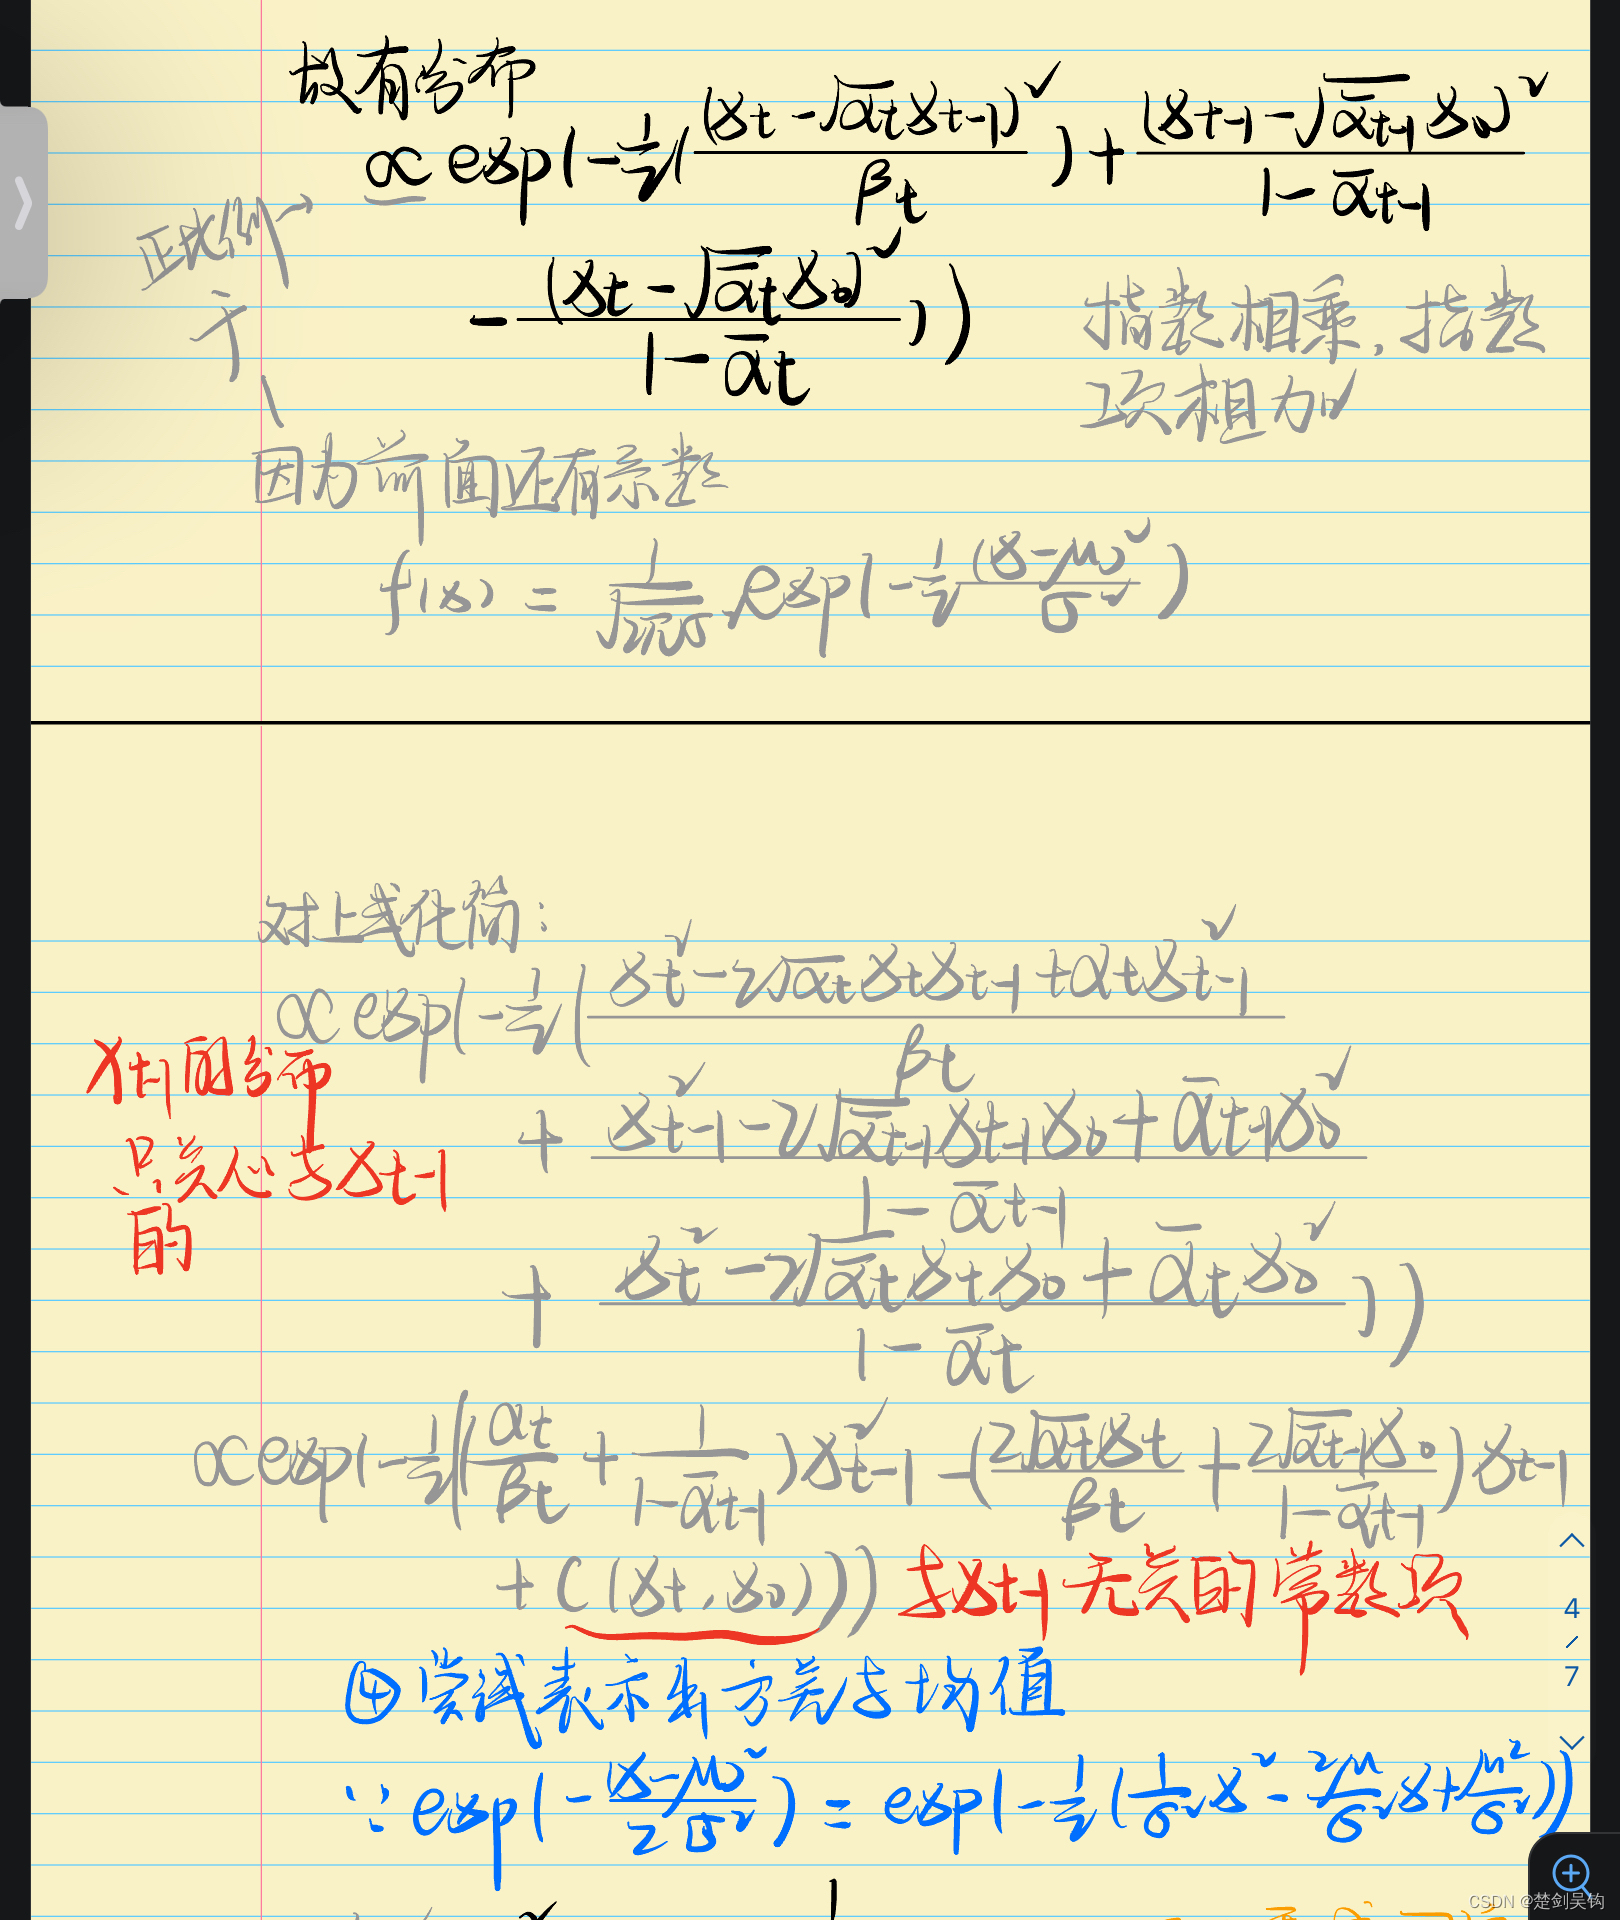 故有分布
∝ exp(-½(\frac{(x_t-\sqrt{α_t}x_{t-1})²}{β_t})+\frac{(x_{t-1}-\sqrt{\bar{α}_{t-1}}x_0)²}{1-\bar{α}_{t-1}}
-\frac{(x_t-\sqrt{\bar{α}_t}x_0)²}{1-\bar{α}_t}))
正比例
于
指数相乘,指数
项相加
因为前面还有系数
f(x) = \frac{1}{\sqrt{2π}σ} exp(-½\frac{(x-μ)²}{σ²})
对上式化简:
∝ exp(-½(\frac{x_t²-2\sqrt{α_t}x_tx_{t-1}+α_tx_{t-1}²}{β_t}
+\frac{x_{t-1}²-2\sqrt{\bar{α}_{t-1}}x_{t-1}x_0+\bar{α}_{t-1}x_0²}{1-\bar{α}_{t-1}}
x_{t-1}的分布
只关心与x_{t-1}
的
+\frac{x_t²-2\sqrt{\bar{α}_t}x_tx_0+\bar{α}_tx_0²}{1-\bar{α}_t}))
∝ exp(-½((\frac{α_t}{β_t}+\frac{1}{1-\bar{α}_{t-1}})x_{t-1}²-(\frac{2\sqrt{α_t}x_t}{β_t}+\frac{2\sqrt{\bar{α}_{t-1}}x_0}{1-\bar{α}_{t-1}})x_{t-1}
+C(x_t,x_0))) 与x_{t-1}无关的常数项
④尝试表示出方差与均值
∵exp(-\frac{(x-μ)²}{2σ²}) = exp(-½(\frac{1}{σ²}x²-\frac{2μ}{σ²}x+\frac{μ²}{σ²}))
4
/
7
CSDN @楚剑吴钩